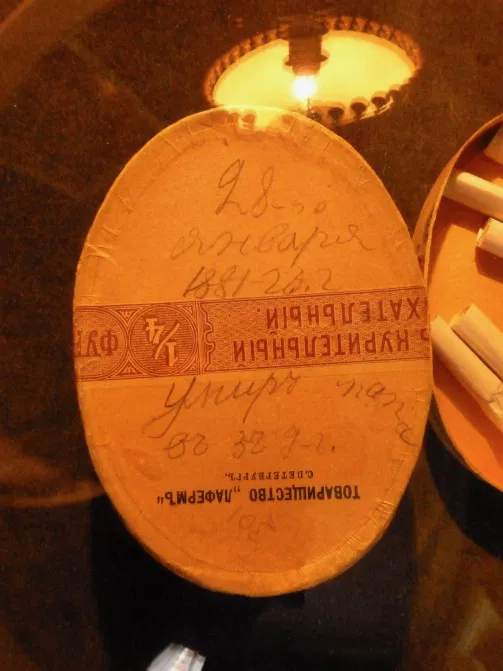 28-го
января
1881-го г
КУРИТЕЛЬНЫЙ
1/4
Умиръ папа
въ
ТОВАРИЩЕСТВО „ЛАФЕРМЪ“
С.ПЕТЕРБУРГЪ.